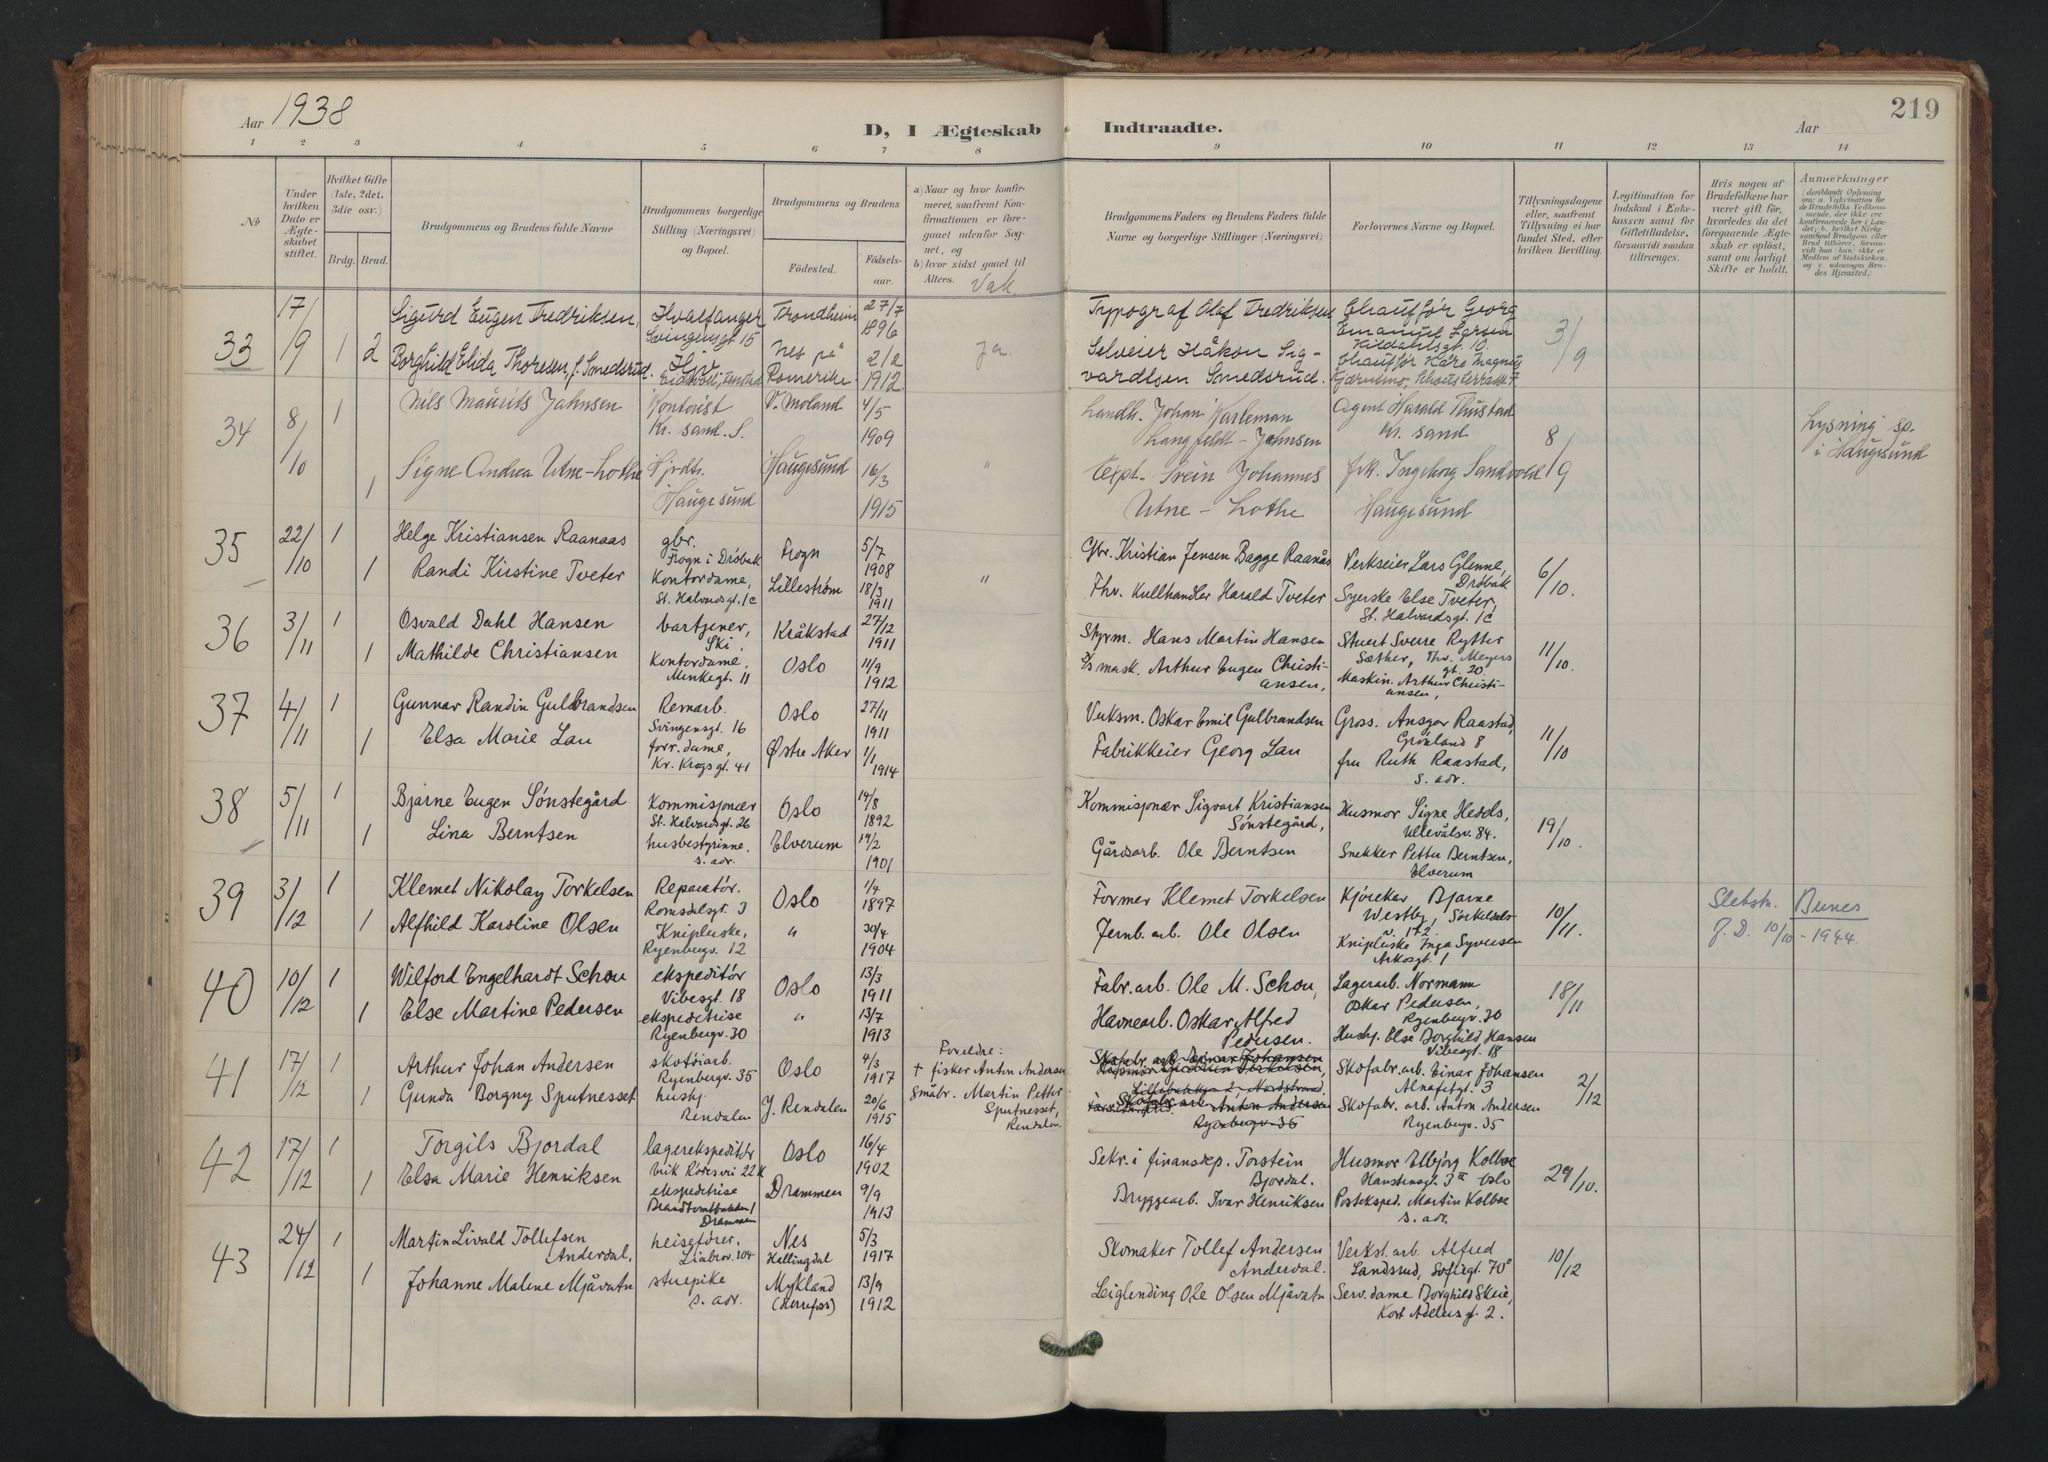 Aar 1938
D, I Ægteskab Indtraadte.
Aar
219
1 2 3 4 5 6 7 8 9 10 11 12 13 14
No
Under hvilken Dato er Ægteskabet stiftet.
Hvilket Gifte (1ste, 2det, 3die osv.)
Brdg. Brud.
Brudgommens og Brudens fulde Navne
Brudgommens borgerlige Stilling (Næringsvei) og Bopæl.
Brudgommens og Brudens
Födested. Födselsaar.
a) Naar og hvor konfirmeret, saafremt Konfirmationen er foregaaet udenfor Sognet, og
b) hvor sidst gaaet til Alters.
Vak.
Brudgommens Faders og Brudens Faders fulde Navne og borgerlige Stillinger (Næringsvei)
Forlovernes Navne og Bopæl.
Tillysningsdagene eller, saafremt Tillysning ei har fundet Sted, efter hvilken Bevilling.
Legitimation for Indskud i Enkekassen samt for Giftetilladelse, forsaavidt saadan tiltrænges.
Hvis nogen af Brudefolkene har været gift för, hvorledes da det foregaaende Ægteskab er oplöst, samt om lovligt Skifte er holdt.
Anmærkninger
33 17/9 1 2
Sigurd Eugen Fredriksen, Hvalfanger Svingensgt 15 Trondheim 27/7 1896
Borghild Elida Thoresen, f. Smedsrud. Hjv. Nes på Romerike 2/2 1912
Ja.
Typograf Olaf Fredriksen
Selveier Håkon Sigvardtsen Smedsrud.
Chauffør Georg Emanuel Larsen Kildahlsgt. 10.
Chauffør Kåre Magnus
3/9
34 8/10 1 1
Nils Maurits Jahnsen Kontorist Kr. sand. S. V. Moland 4/5 1909
Signe Andrea Utne-Lothe Hjrdtr. Haugesund Haugesund 16/3 1915
"
Landh. Johan Karleman Langfeldt-Jahnsen
Exp. Svein Johannes Utne-Lothe
Agent Harald Thustad Kr. sand
frk. Ingeborg Sandvold Haugesund
8/9
Lysning sp. i Haugesund
35 22/10 1 1
Helge Kristiansen Raanaas gbr. Frogn i Drøbak Frogn 5/7 1908
Randi Kirstine Tveter Kontordame, St. Halvardsgt. 1c Lillestrøm 18/3 1911
"
Gbr. Kristian Jensen Bagge Raanås
Fhv. Kullhandler Harald Tveter
Verkseier Lars Glenne, Drøbak
Syerske Else Tveter, St. Halvardsgt. 1c
6/10.
36 3/11 1 1
Osvald Dahl Hansen vartjener, Ski, Kråkstad 27/12 1911
Mathilde Christiansen Kontordame, Minkegt. 11 Oslo 11/9 1912
Styrm. Hans Martin Hansen
mask. Arthur Eugen Christiansen,
Stuert Sverre Rytter Sæther, Thv. Meyers gt. 20
Maskin. Arthur Christiansen,
11/10.
37 4/11 1 1
Gunnar Randin Gulbrandsen Remarb. Svingensgt. 16 Oslo 27/11 1911
Elsa Marie Lau forr. dame, Kr. Krogs gt. 41 Østre Aker 1/1 1914
Verksm. Oskar Emil Gulbrandsen
Fabrikkeier Georg Lau
Gross. Ansgar Raastad, Grønland 8
fru Ruth Raastad, s. adr.
11/10
38 5/11 1 1
Bjarne Eugen Sønstegård Kommisjonær St. Halvardsgt. 26 Oslo 14/8 1892
Lina Berntsen husbestyrinne, s. adr. Elverum 19/2 1901
Kommisjonær Sigvart Kristiansen Sønstegård,
Gårdsarb. Ole Berntsen
Husmor Signe Hedds, Ullevålsv. 84.
Snekker Petter Berntsen, Elverum
19/10.
39 3/12 1 1
Klemet Nikolay Torkelsen Reparatør. Romsdalsgt. 3 Oslo 1/4 1897
Alfhild Karoline Olsen Knipluske, Ryenbergv. 12 " 30/4 1904
Former Klemet Torkelsen
Jernb. arb. Ole Olsen
Kjørekar Bjarne Westby, Sørkedalsv. 172.
Knipluske Inga Syversen Arkosgt. 1
10/11.
Bunes
10/10 - 1944.
40 10/12 1 1
Wilford Engelhardt Schou ekspeditør Vibesgt. 18 Oslo 13/3 1911
Else Martine Pedersen ekspeditrise Ryenbergv. 30 " 13/7 1913
Fabr. arb. Ole M. Schou,
Havnearb. Oskar Alfred Pedersen.
Lagerarb. Normann Oskar Pedersen, Ryenbergv. 30
Hushj. Else Borghild Hansen Vibesgt. 18
18/11
41 17/12 1 1
Arthur Johan Andersen skotøiarb. Ryenbergv. 35 Oslo 4/3 1917
Gunda Borgny Sputnesset hushj. Rendalen Y. Rendalen 20/6 1915
Foreldre:
+ fisker Anton Andersen
Småbr. Martin Petter Sputnesset, Rendalen.
Skofabr. arb. Einar Johansen
Skofabr. arb. Anton Andersen
Ryenbergv. 35
Skofabr. arb. Einar Johansen Alnafetgt. 3
Skofabr. arb. Anton Andersen Ryenbergv. 35
2/12
42 17/12 1 1
Torgils Bjordal lagerekspeditør Erik Rødes vei 22K Oslo 16/4 1902
Elsa Marie Henriksen ekspeditrise Drammen Drammen 9/9 1913
Sekr. i finansdep. Torstein Bjordal.
Bryggearb. Ivar Henriksen
Husmor Elbjörg Kolboe Hanstensgt. 3 II Oslo
Postekspd. Martin Kolboe s. adr.
29/10.
43 24/12 1 1
Martin Livald Tollefsen Anderdal, heisefører, Liabrov. 104 Nes Hallingdal 5/3 1917
Johanne Malene Mjåvatn stuepike s. adr. Mykland (Herrefoss) 13/9 1912
Skomaker Tollef Andersen Anderdal.
Leiglending Ole Olsen Mjåvatn
Verkst. arb. Alfred Landsrud, Sofiegt. 70
Serv. dame Borghild Skeie, Kort Adelers gt. 2.
10/12